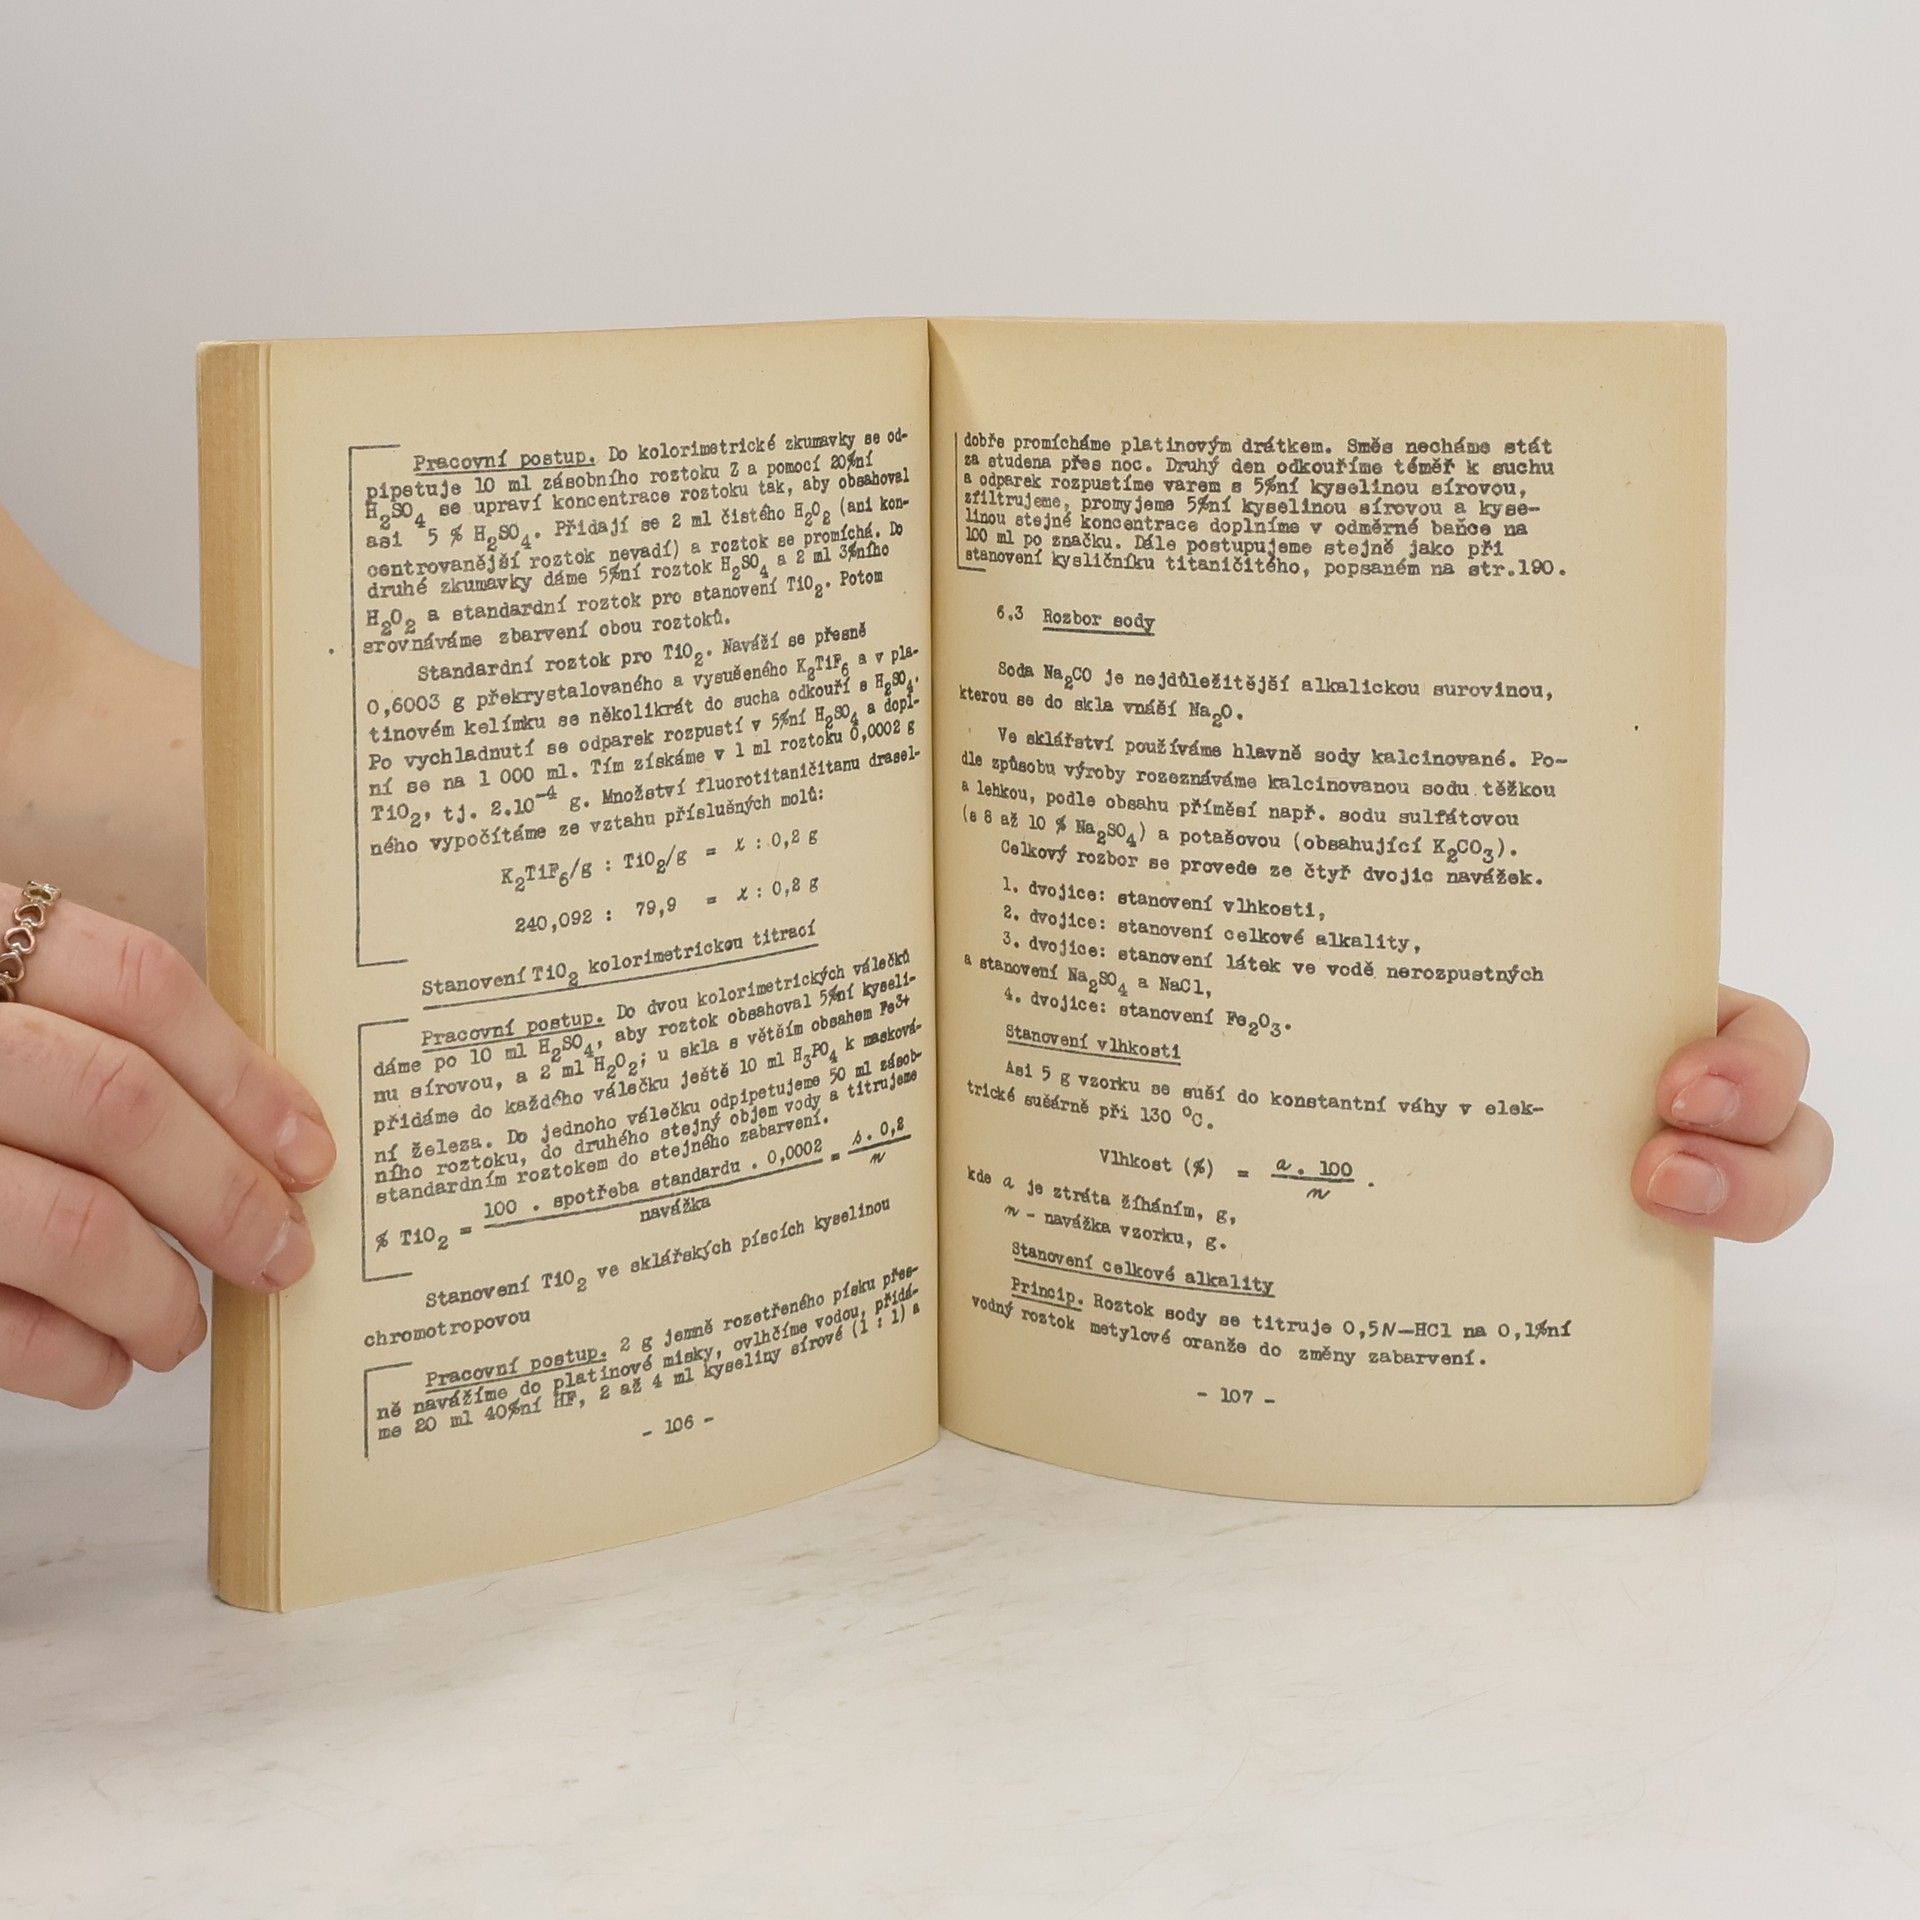 Pracovní postup. Do kolorimetrické zkumavky se od-
pipetuje 10 ml zásobního roztoku Z a pomocí 20%ní
H2SO4 se upraví koncentrace roztoku tak, aby obsahoval
asi 5 % H2SO4. Přidají se 2 ml čistého H2O2 (ani kon-
centrovanější roztok nevadí) a roztok se promíchá. Do
druhé zkumavky dáme 5%ní roztok H2SO4 a 2 ml 3%ního
H2O2 a standardní roztok pro stanovení TiO2. Potom
srovnáváme zbarvení obou roztoků.
Standardní roztok pro TiO2. Naváží se přesně
0,6003 g překrystalovaného a vysušeného K2TiF6 a v pla-
tinovém kelímku se několikrát do sucha odkouří s H2SO4.
Po vychladnutí se odparek rozpustí v 5%ní H2SO4 a dopl-
ní se na 1 000 ml. Tím získáme v 1 ml roztoku 0,0002 g
TiO2, tj. 2.10⁻⁴ g. Množství fluorotitaničitanu drasel-
ného vypočítáme ze vztahu příslušných molů:
K2TiF6/g : TiO2/g = x : 0,2 g
240,092 : 79,9 = x : 0,2 g
Stanovení TiO2 kolorimetrickou titrací
Pracovní postup. Do dvou kolorimetrických válečků
dáme po 10 ml H2SO4, aby roztok obsahoval 5%ní kyseli-
nu sírovou, a 2 ml H2O2; u skla s větším obsahem Fe3+
přidáme do každého válečku ještě 10 ml H3PO4 k masková-
ní železa. Do jednoho válečku odpipetujeme 50 ml zásob-
ního roztoku, do druhého stejný objem vody a titrujeme
standardním roztokem do stejného zabarvení.
% TiO2 = 100 . spotřeba standardu . 0,0002 / navážka = s. 0,2 / n
Stanovení TiO2 ve sklářských píscích kyselinou
chromotropovou
Pracovní postup. 2 g jemně rozetřeného písku přes-
ně navážíme do platinové misky, ovlhčíme vodou, přidá-
me 20 ml 40%ní HF, 2 až 4 ml kyseliny sírové (1 : 1) a
- 106 -
dobře promícháme platinovým drátkem. Směs necháme stát
za studena přes noc. Druhý den odkouříme téměř k suchu
a odparek rozpustíme varem s 5%ní kyselinou sírovou,
zfiltrujeme, promyjeme 5%ní kyselinou sírovou a kyse-
linou stejné koncentrace doplníme v odměrné baňce na
100 ml po značku. Dále postupujeme stejně jako při
stanovení kysličníku titaničitého, popsaném na str.190.
6.3 Rozbor sody
Soda Na2CO je nejdůležitější alkalickou surovinou,
kterou se do skla vnáší Na2O.
Ve sklářství používáme hlavně sody kalcinované. Po-
dle způsobu výroby rozeznáváme kalcinovanou sodu těžkou
a lehkou, podle obsahu příměsí např. sodu sulfátovou
(s 8 až 10 % Na2SO4) a potašovou (obsahující K2CO3).
Celkový rozbor se provede ze čtyř dvojic navážek.
1. dvojice: stanovení vlhkosti,
2. dvojice: stanovení celkové alkality,
3. dvojice: stanovení látek ve vodě nerozpustných
a stanovení Na2SO4 a NaCl,
4. dvojice: stanovení Fe2O3.
Stanovení vlhkosti
Asi 5 g vzorku se suší do konstantní váhy v elek-
trické sušárně při 130 °C.
Vlhkost (%) = a . 100 / n .
kde a je ztráta žíháním, g,
n - navážka vzorku, g.
Stanovení celkové alkality
Princip. Roztok sody se titruje 0,5N-HCl na 0,1%ní
vodný roztok metylové oranže do změny zabarvení.
- 107 -